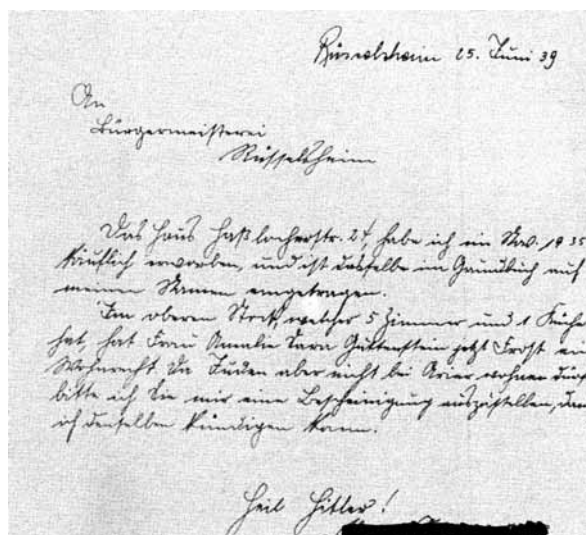 Rüsselsheim 25. Juni 39
An
Bürgermeisterei
Rüsselsheim
Das Haus Haßlocherstr. 24, habe ich im Nov. 1935
käuflich erworben, und ist dasselbe im Grundbuch auf
meinen Namen eingetragen.
Im oberen Stock, welcher 5 Zimmer und 1 Küche
hat, hat Frau Amalie Sara Guttenstein jetzt Frost ein
Wohnrecht. Da Juden aber nicht bei Arier wohnen dürf
bitte ich Sie mir eine Bescheinigung auszustellen, dam
ich denselben kündigen kann.
Heil Hitler!